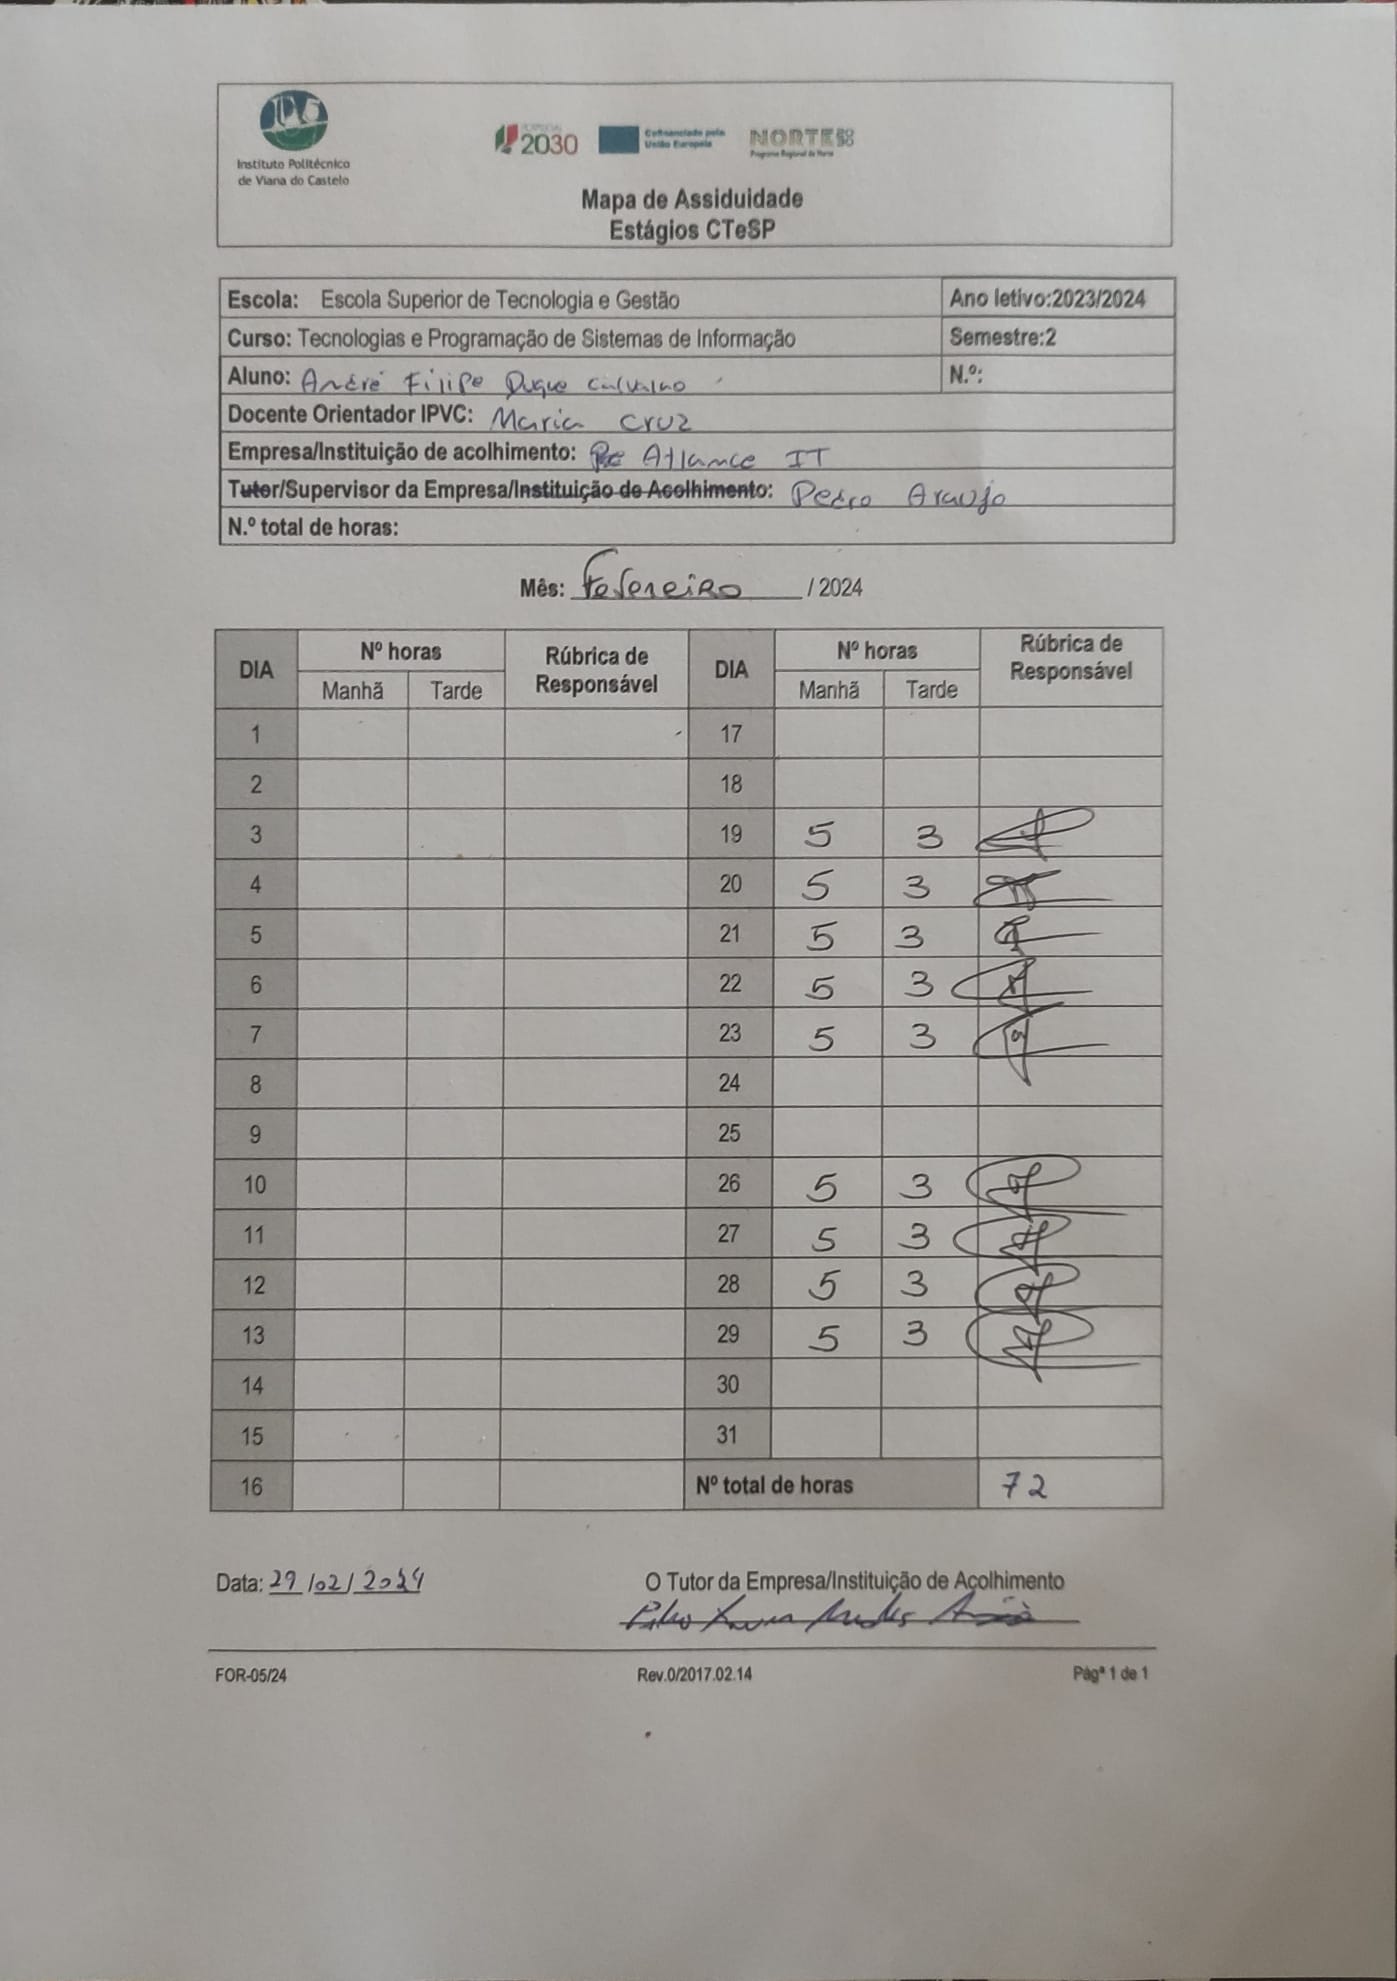 Instituto Politécnico
de Viana do Castelo
2030
Cofinanciado pela
União Europeia
NORTE
Programa Regional do Norte
Mapa de Assiduidade
Estágios CTeSP
Escola: Escola Superior de Tecnologia e Gestão
Ano letivo:2023/2024
Curso: Tecnologias e Programação de Sistemas de Informação
Semestre:2
Aluno: André Filipe Duque Carvalho
N.º:
Docente Orientador IPVC: Maria Cruz
Empresa/Instituição de acolhimento: Atlance IT
Tutor/Supervisor da Empresa/Instituição de Acolhimento: Pedro Araujo
N.º total de horas:
Mês: Fevereiro / 2024
DIA Nº horas Rúbrica de Responsável DIA Nº horas Rúbrica de Responsável
Manhã Tarde Manhã Tarde
1 17
2 18
3 19 5 3
4 20 5 3
5 21 5 3
6 22 5 3
7 23 5 3
8 24
9 25
10 26 5 3
11 27 5 3
12 28 5 3
13 29 5 3
14 30
15 31
16 Nº total de horas 72
Data: 29/02/2024
O Tutor da Empresa/Instituição de Acolhimento
FOR-05/24 Rev.0/2017.02.14 Págª 1 de 1